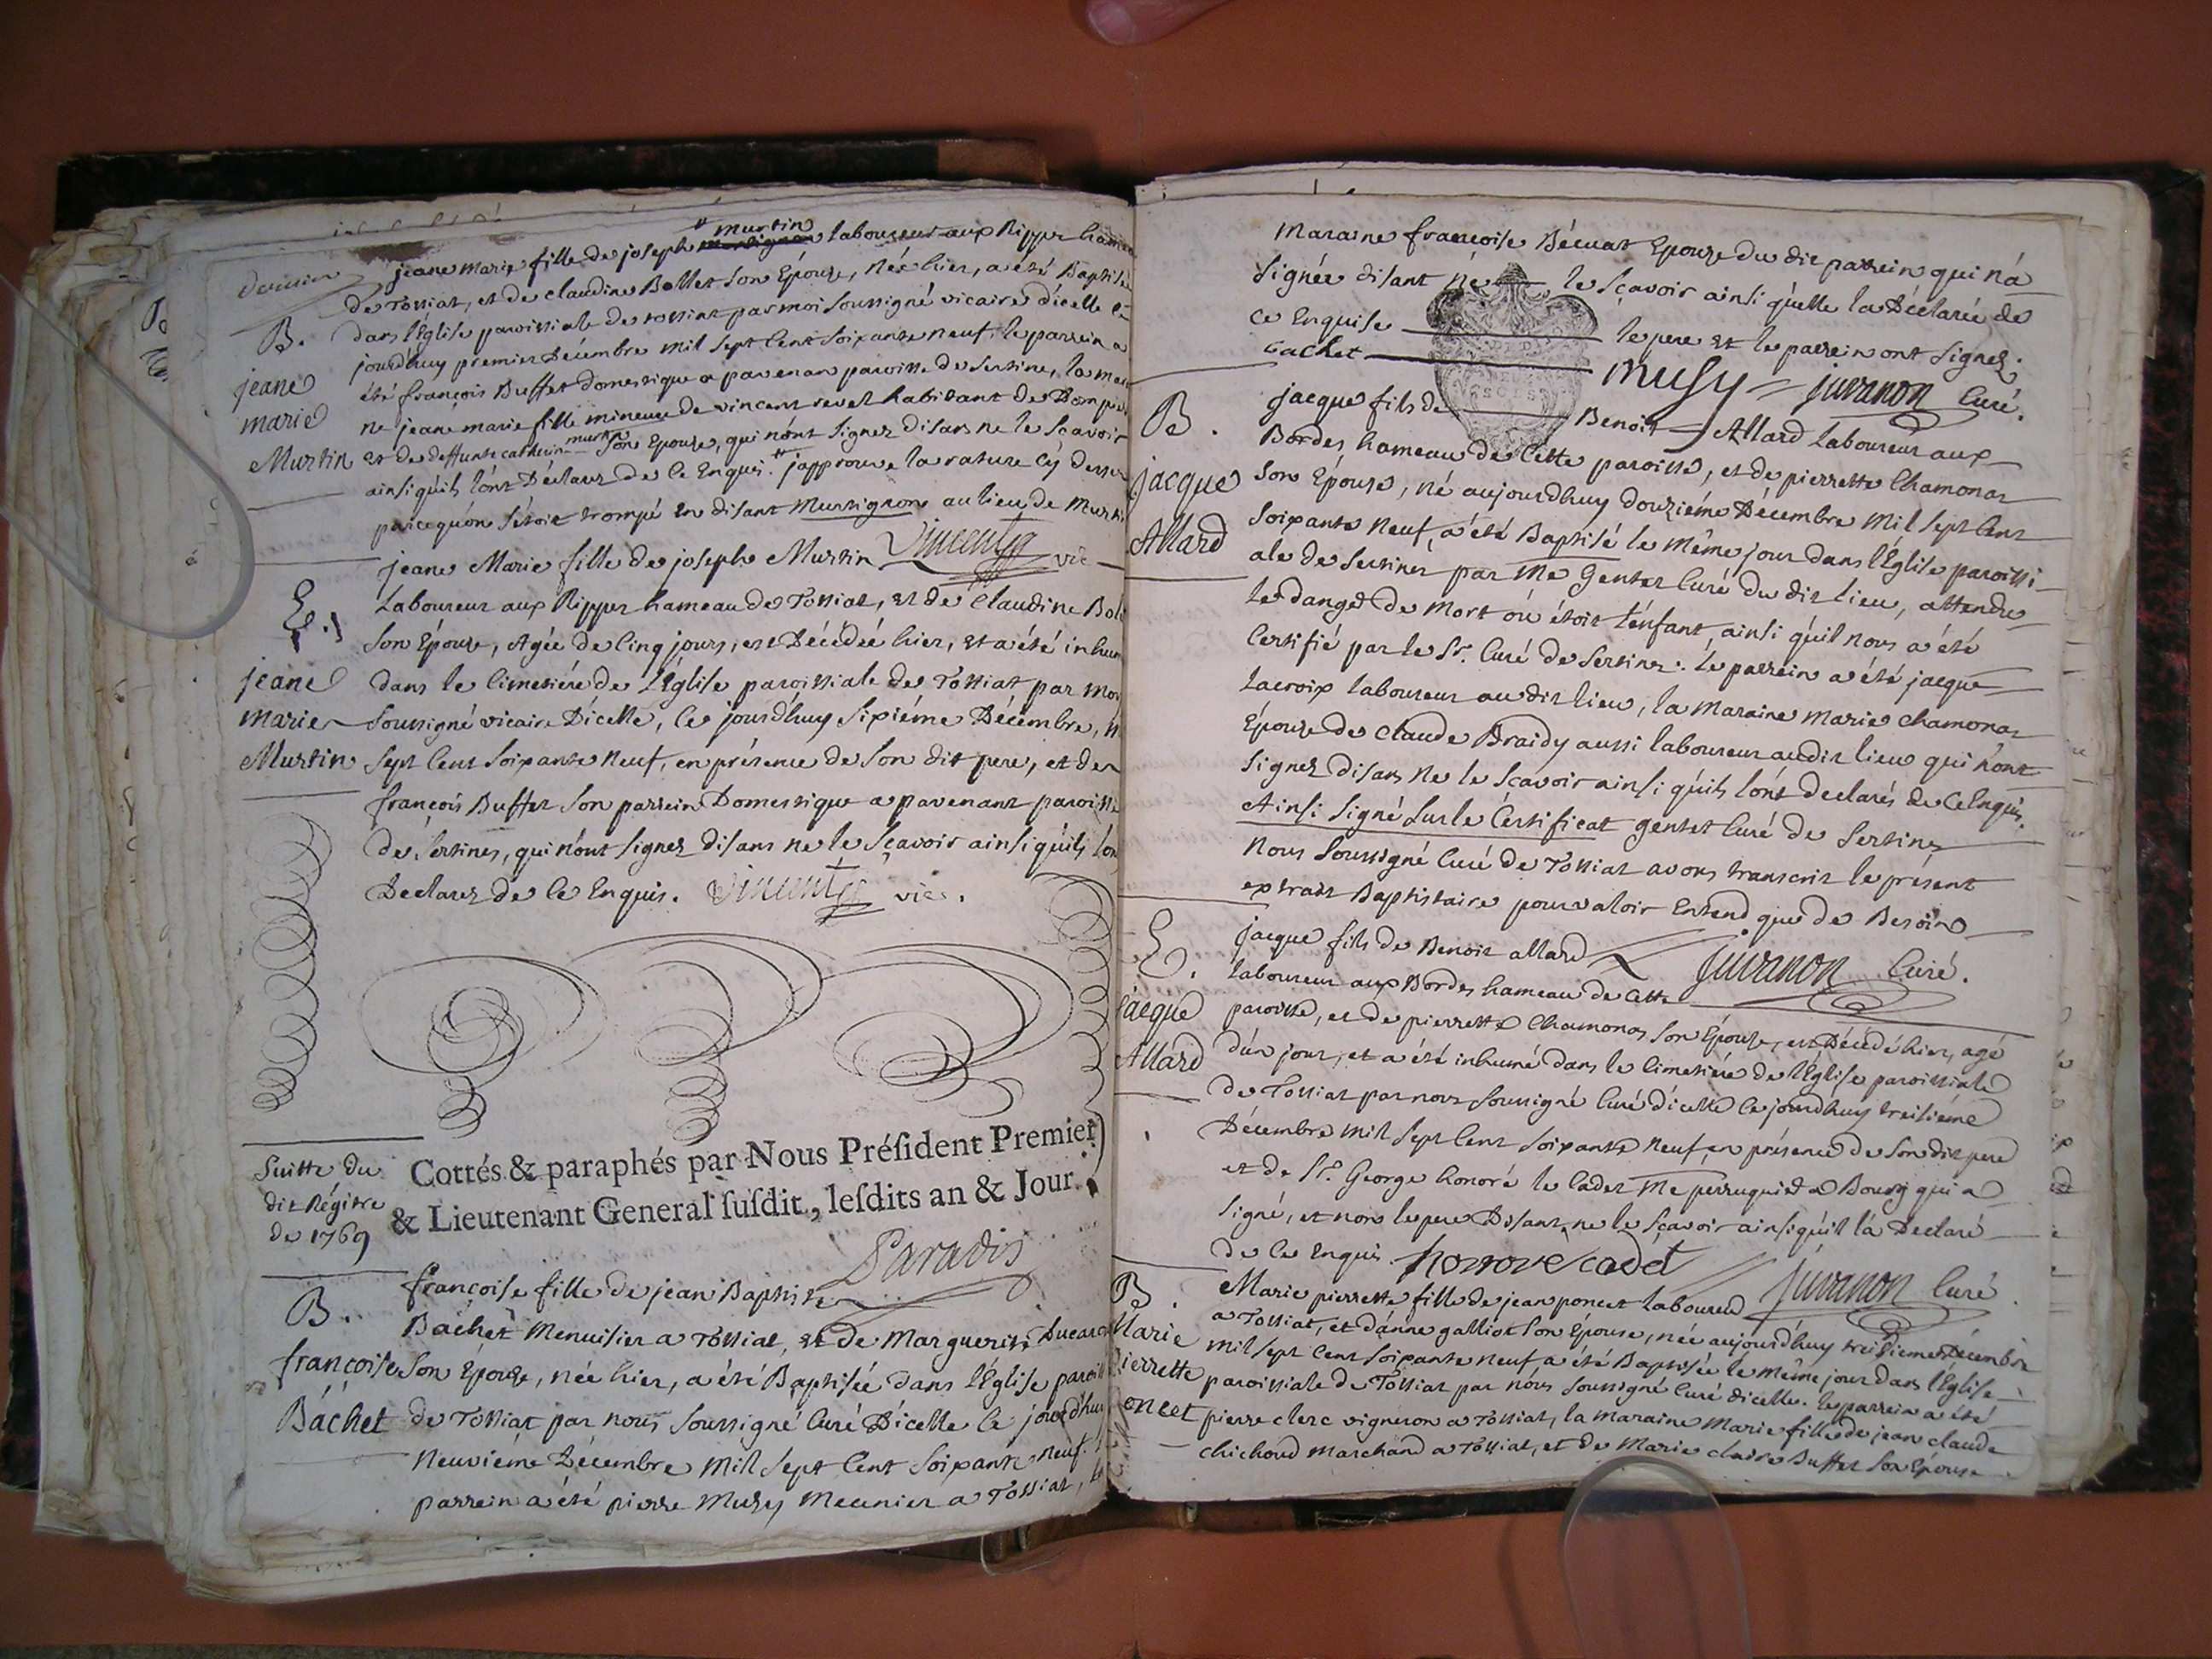 dernier
jeane marie fille de joseph # murtin laboureur aux Rippes hameau
de Tossiat, et de claudine Bollet son Epouze, née hier, a été Baptisée
dans l'Eglise paroissiale de tossiat par moi soussigné vicaire d'icelle ce
jourdhuy premier Décembre mil sept Cent soixante neuf. le parrein a
été françois Buffet domestique a pavenan paroisse de Sertines, la marai
ne jeane marie fille mineure de vincent revel habitant de Dompie
et de deffunte catherine murtin son Epouze, qui nónt signez disans ne le sçavoir
ainsi qúils lónt Déclarez de ce Enquis. # j'approuve la rature cÿ dessus
parcequ'on s'étoit trompé en disant Murtignon au lieu de Murtin
Vincent vic
B.
jeane
marie
Murtin
jeane Marie fille de joseph Murtin
Laboureur aux Rippes hameau de Tossiat, et de Claudine Bol
son Épouze, Agée de Cinq jours, est Décédée hier, et a été inhum
dans le Cimetiére de l'Église paroissiale de Tossiat par moi
soussigné vicaire D'icelle, Ce jourd'huy sixiéme Décembre, m
sept Cent soixante neuf, en présence de son dit pere, et de
françois Buffet son parrein Domestique a pavenant paroisse
de Sertines, qui nónt signez disans ne le sçavoir ainsi qúils lon
Declarez de Ce Enquis. Vincent vic.
E.
jeane
marie
Murtin
Suitte du
dit Régitre
de 1769
Cottés & paraphés par Nous Préſident Premier
& Lieutenant General ſuſdit, leſdits an & Jour.
Paradis
françoise fille de jean Baptiste
Báchet Menuisier a Tossiat, et de Marguerite Ducarr
son Epouze, née hier, a été Baptisée dans l'Église paroiss
de Tossiat par nous soussigné Curé D'icelle ce jourd'huy
Neuviéme Décembre Mil sept Cent soixante neuf. l
parrein a été pierre Muzy Meunier a Tossiat, la
B.
françoise
Báchet
Maraine françoise Bécuat Epouze du dit parrein qui n'a
signée disant ne le sçavoir ainsi qúelle la Déclarée de
ce Enquise le pere et le parrein ont signez.
Cachet Musy juvanon Curé.
jacque fils de Benoit Allard laboureur aux
Bordes hameau de Cette paroisse, et de pierrette Chamonat
son Épouze, né aujourdhuy douziéme Décembre Mil sept Cent
soixante Neuf, a été Baptisé le Même jour dans l'Église paroissi-
ale de Sertines par Me Gentet Curé du dit lieu, attendu
Le danger de Mort óu étoit l'énfant, ainsi qúil nous a été
Certifié par le Sr. Curé de Sertines. le parrein a été jacque
Lacroix laboureur au dit lieu, la Maraine Marie Chamonat
Épouze de Claude Braidy aussi laboureur audit lieu qui nónt
signez disans Ne le sçavoir ainsi qúils lónt declarés de Ce Enquis.
Ainsi signé sur le Certificat gentet Curé de Sertines
Nous soussigné Curé de Tossiat avons transcrit le présent
extrait Baptistaire pour valoir Entend que de Besoin
juvanon Curé.
B.
jacque
Allard
jacque fils de Benoit allard
laboureur aux Bordes hameau de Cette
paroisse, et de pierrette Chamonat son Epouze, est Décédé hier, agé
dún jour, et a été inhumé dans le Cimetiére de l'Église paroissiale
de Tossiat par nous soussigné Curé d'icelle Ce jourdhuy treisiéme
Décembre mil sept Cent soixante neuf en présence de son dit pere
et de Sr. George honoré le Cadet Me perruquier a Bourg qui a
signé, et non le pere Disant ne le sçavoir ainsi qúil lá Declaré
de Ce Enquis. honore cadet juvanon Curé
E.
jacque
Allard
Marie pierrette fille de jean poncet laboureur
a Tossiat, et dánne galliot son Epouse, née aujourd'huy treisieme Décembre
mil sept Cent soixante neuf a été Baptisée le Même jour dans l'Église
paroissiale de Tossiat par nóus soussigné Curé dicelle. le parrein a été
pierre clerc vigneron a Tossiat, la maraine Marie fille de jean claude
chichoud marchand a Tossiat, et de Marie claire Buffet son Epouse
B.
Marie
pierrette
poncet